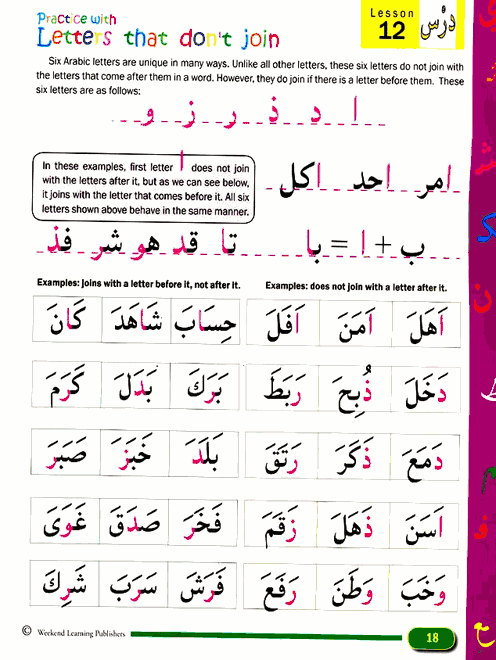 Practice with
Letters that don't join
Lesson 12
دَرْس
Six Arabic letters are unique in many ways. Unlike all other letters, these six letters do not join with
the letters that come after them in a word. However, they do join if there is a letter before them. These
six letters are as follows:
ا د ذ ر ز و
In these examples, first letter ا does not join
with the letters after it, but as we can see below,
it joins with the letter that comes before it. All six
letters shown above behave in the same manner.
امر احد اكل
ب + ا = با تا قد هو شر فذ
Examples: joins with a letter before it, not after it.
Examples: does not join with a letter after it.
اَهَلَ اَمَنَ اَفَلَ حِسَابَ شَاهَدَ كَانَ
دَخَلَ ذُبِحَ رَبَطَ بَرَكَ بَدَلَ كَرَمَ
دَمَعَ ذَكَرَ رَتَقَ بَلَدَ خَبَزَ صَبَرَ
اَسَنَ ذَهَلَ زَقَمَ فَخَرَ صَدَقَ غَوَىَ
وَخَبَ وَطَنَ رَفَعَ فَرَشَ سَرَبَ شَرِكَ
© Weekend Learning Publishers
18